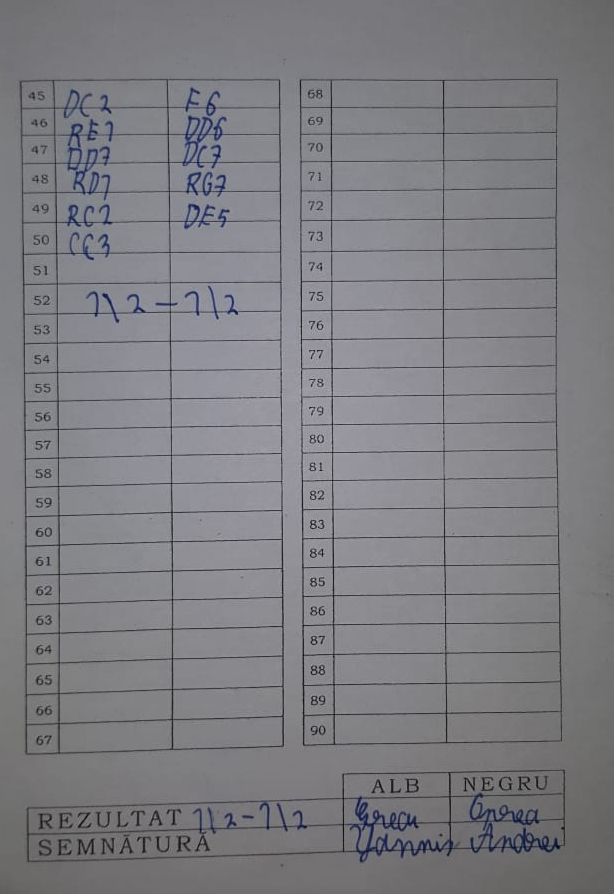 45 DC2 F6
46 RE1 DD6
47 DD7 DC7
48 RD1 RG7
49 RC2 DE5
50 CC3
51
52 1\2 - 1\2
53
54
55
56
57
58
59
60
61
62
63
64
65
66
67
68
69
70
71
72
73
74
75
76
77
78
79
80
81
82
83
84
85
86
87
88
89
90
ALB NEGRU
REZULTAT 1\2 - 1\2 Grecu Oprea
SEMNĂTURĂ Yannis Andrei